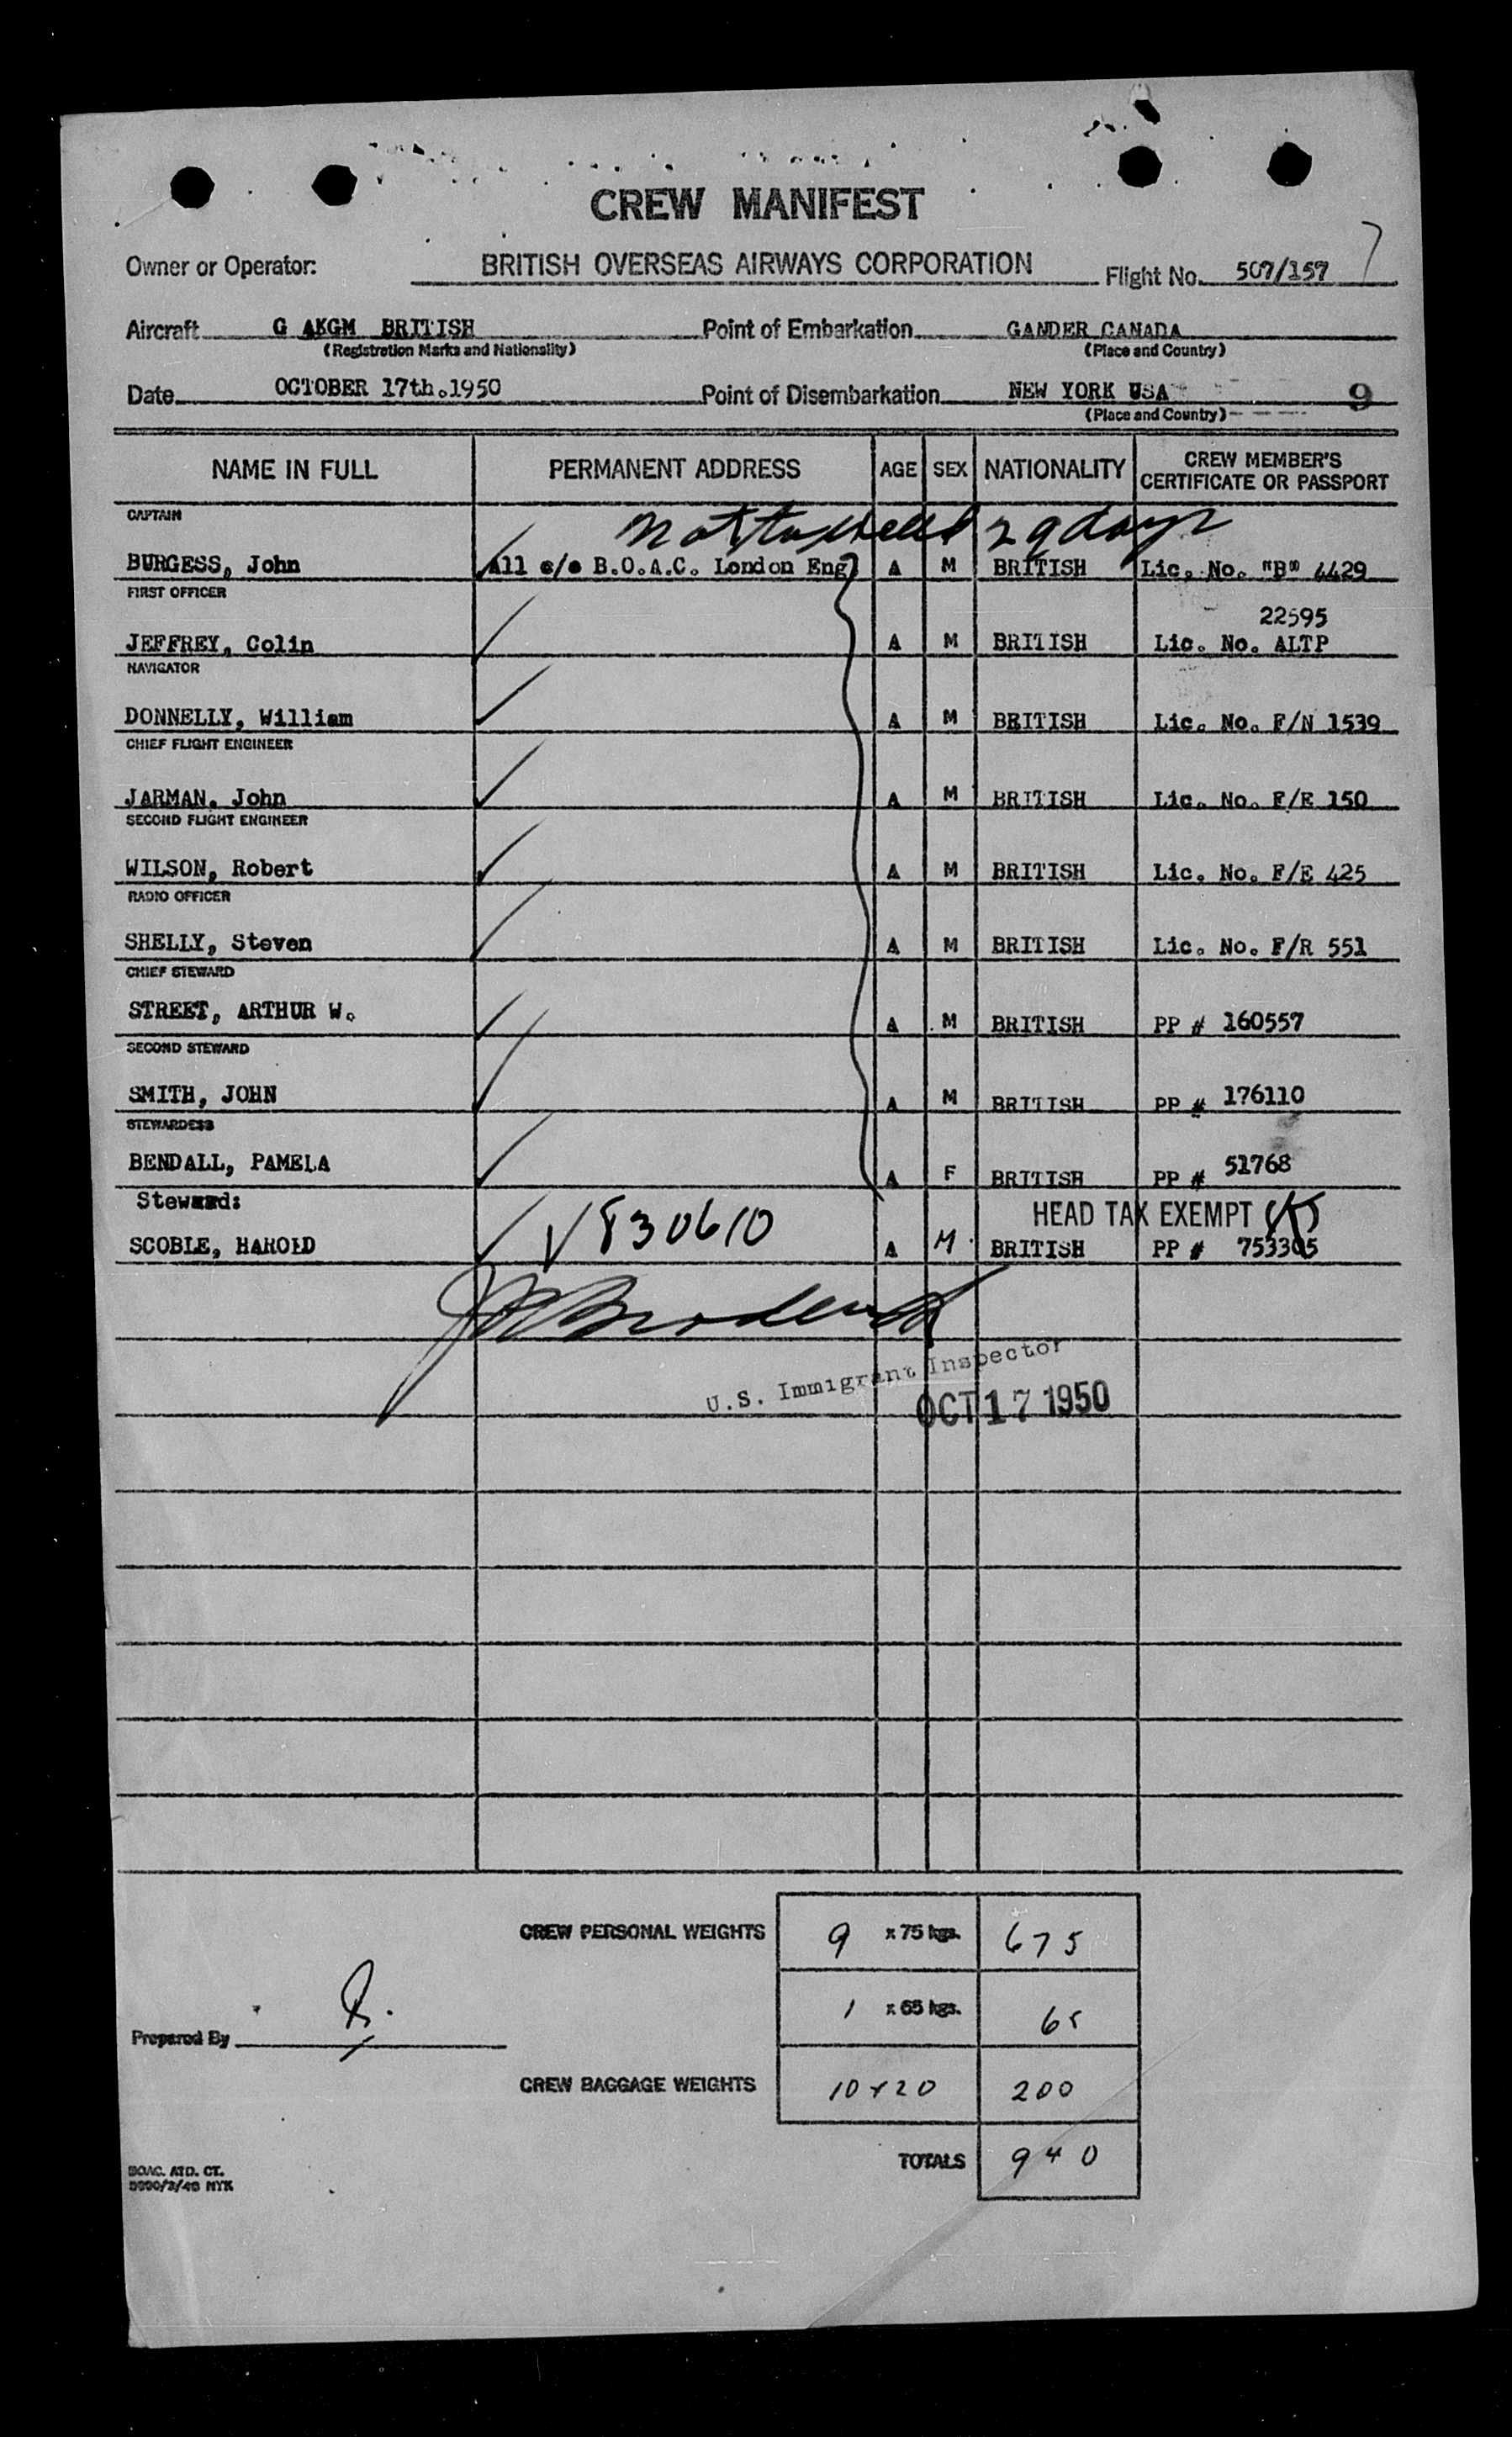 CREW MANIFEST
7
Owner or Operator: BRITISH OVERSEAS AIRWAYS CORPORATION Flight No. 507/157
Aircraft G AKGM BRITISH Point of Embarkation GANDER CANADA
(Registration Marks and Nationality) (Place and Country)
Date OCTOBER 17th.1950 Point of Disembarkation NEW YORK USA 9
(Place and Country)
NAME IN FULL PERMANENT ADDRESS AGE SEX NATIONALITY CREW MEMBER'S CERTIFICATE OR PASSPORT
CAPTAIN
Not to exceed 29 days
BURGESS, John All c/o B.O.A.C. London Eng A M BRITISH Lic. No. "B" 4429
FIRST OFFICER
22595
JEFFREY, Colin A M BRITISH Lic. No. ALTP
NAVIGATOR
DONNELLY, William A M BRITISH Lic. No. F/N 1539
CHIEF FLIGHT ENGINEER
JARMAN, John A M BRITISH Lic. No. F/E 150
SECOND FLIGHT ENGINEER
WILSON, Robert A M BRITISH Lic. No. F/E 425
RADIO OFFICER
SHELLY, Steven A M BRITISH Lic. No. F/R 551
CHIEF STEWARD
STREET, ARTHUR W. A M BRITISH PP # 160557
SECOND STEWARD
SMITH, JOHN A M BRITISH PP # 176110
STEWARDESS
BENDALL, PAMELA A F BRITISH PP # 51768
Steward: HEAD TAX EXEMPT (K)
SCOBLE, HAROLD V830610 A M BRITISH PP # 753305
U.S. Immigrant Inspector
OCT 17 1950
CREW PERSONAL WEIGHTS 9 x 75 kgs. 675
1 x 65 kgs. 65
Prepared By
CREW BAGGAGE WEIGHTS 10 x 20 200
TOTALS 940
BOAC. ATD. CT.